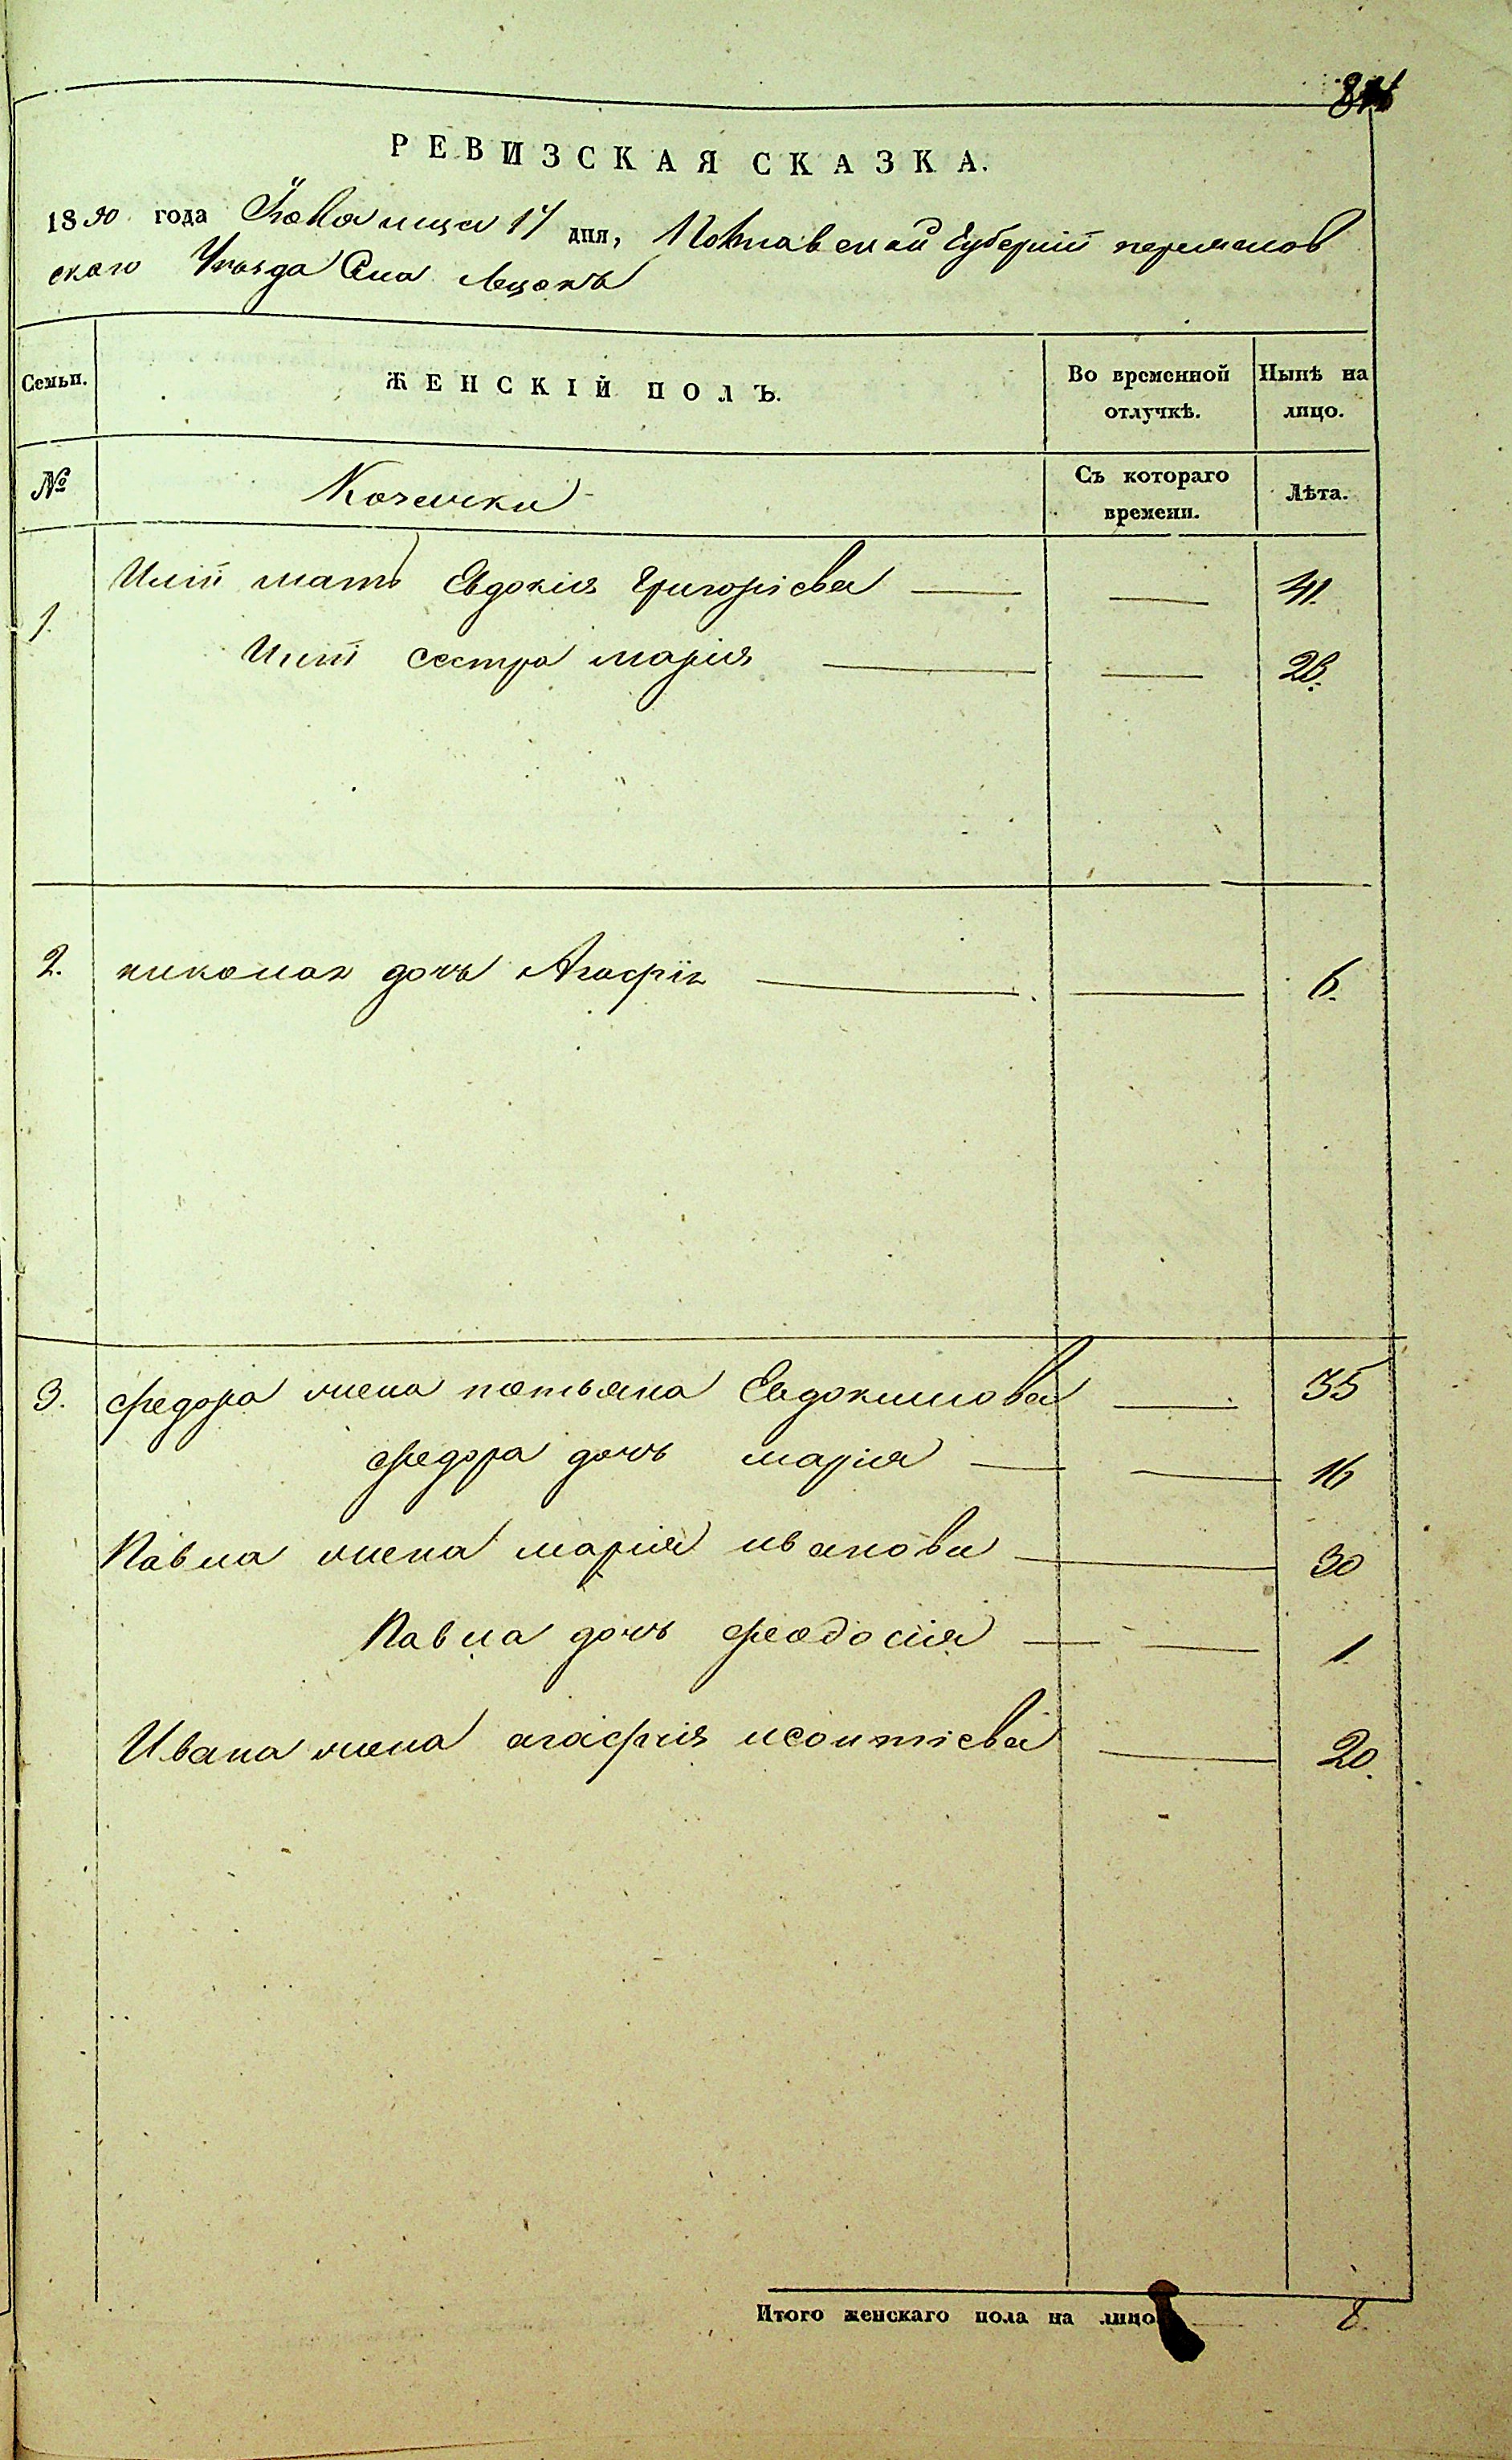 РЕВИЗСКАЯ СКАЗКА.
1850 года мця 17 дня, Полтавской Губерній
ского Уѣзда Села
Семьи. ЖЕНСКІЙ ПОЛЪ. Во временной отлучкѣ. Нынѣ на лицо.
№ Козачки Съ котораго времени. Лѣта.
1. Иліи мать Евдокія Григоріева 41.
Иліи сестра марія 28.
2. николая дочь Агафія 6.
3. федора жена татьяна Евдокимова 35
федора дочь марія 16
Павла жена марія иванова 30
Павла дочь феодосія 1.
Ивана жена агафія леонтіева 20.
Итого женскаго пола на лицо 8.